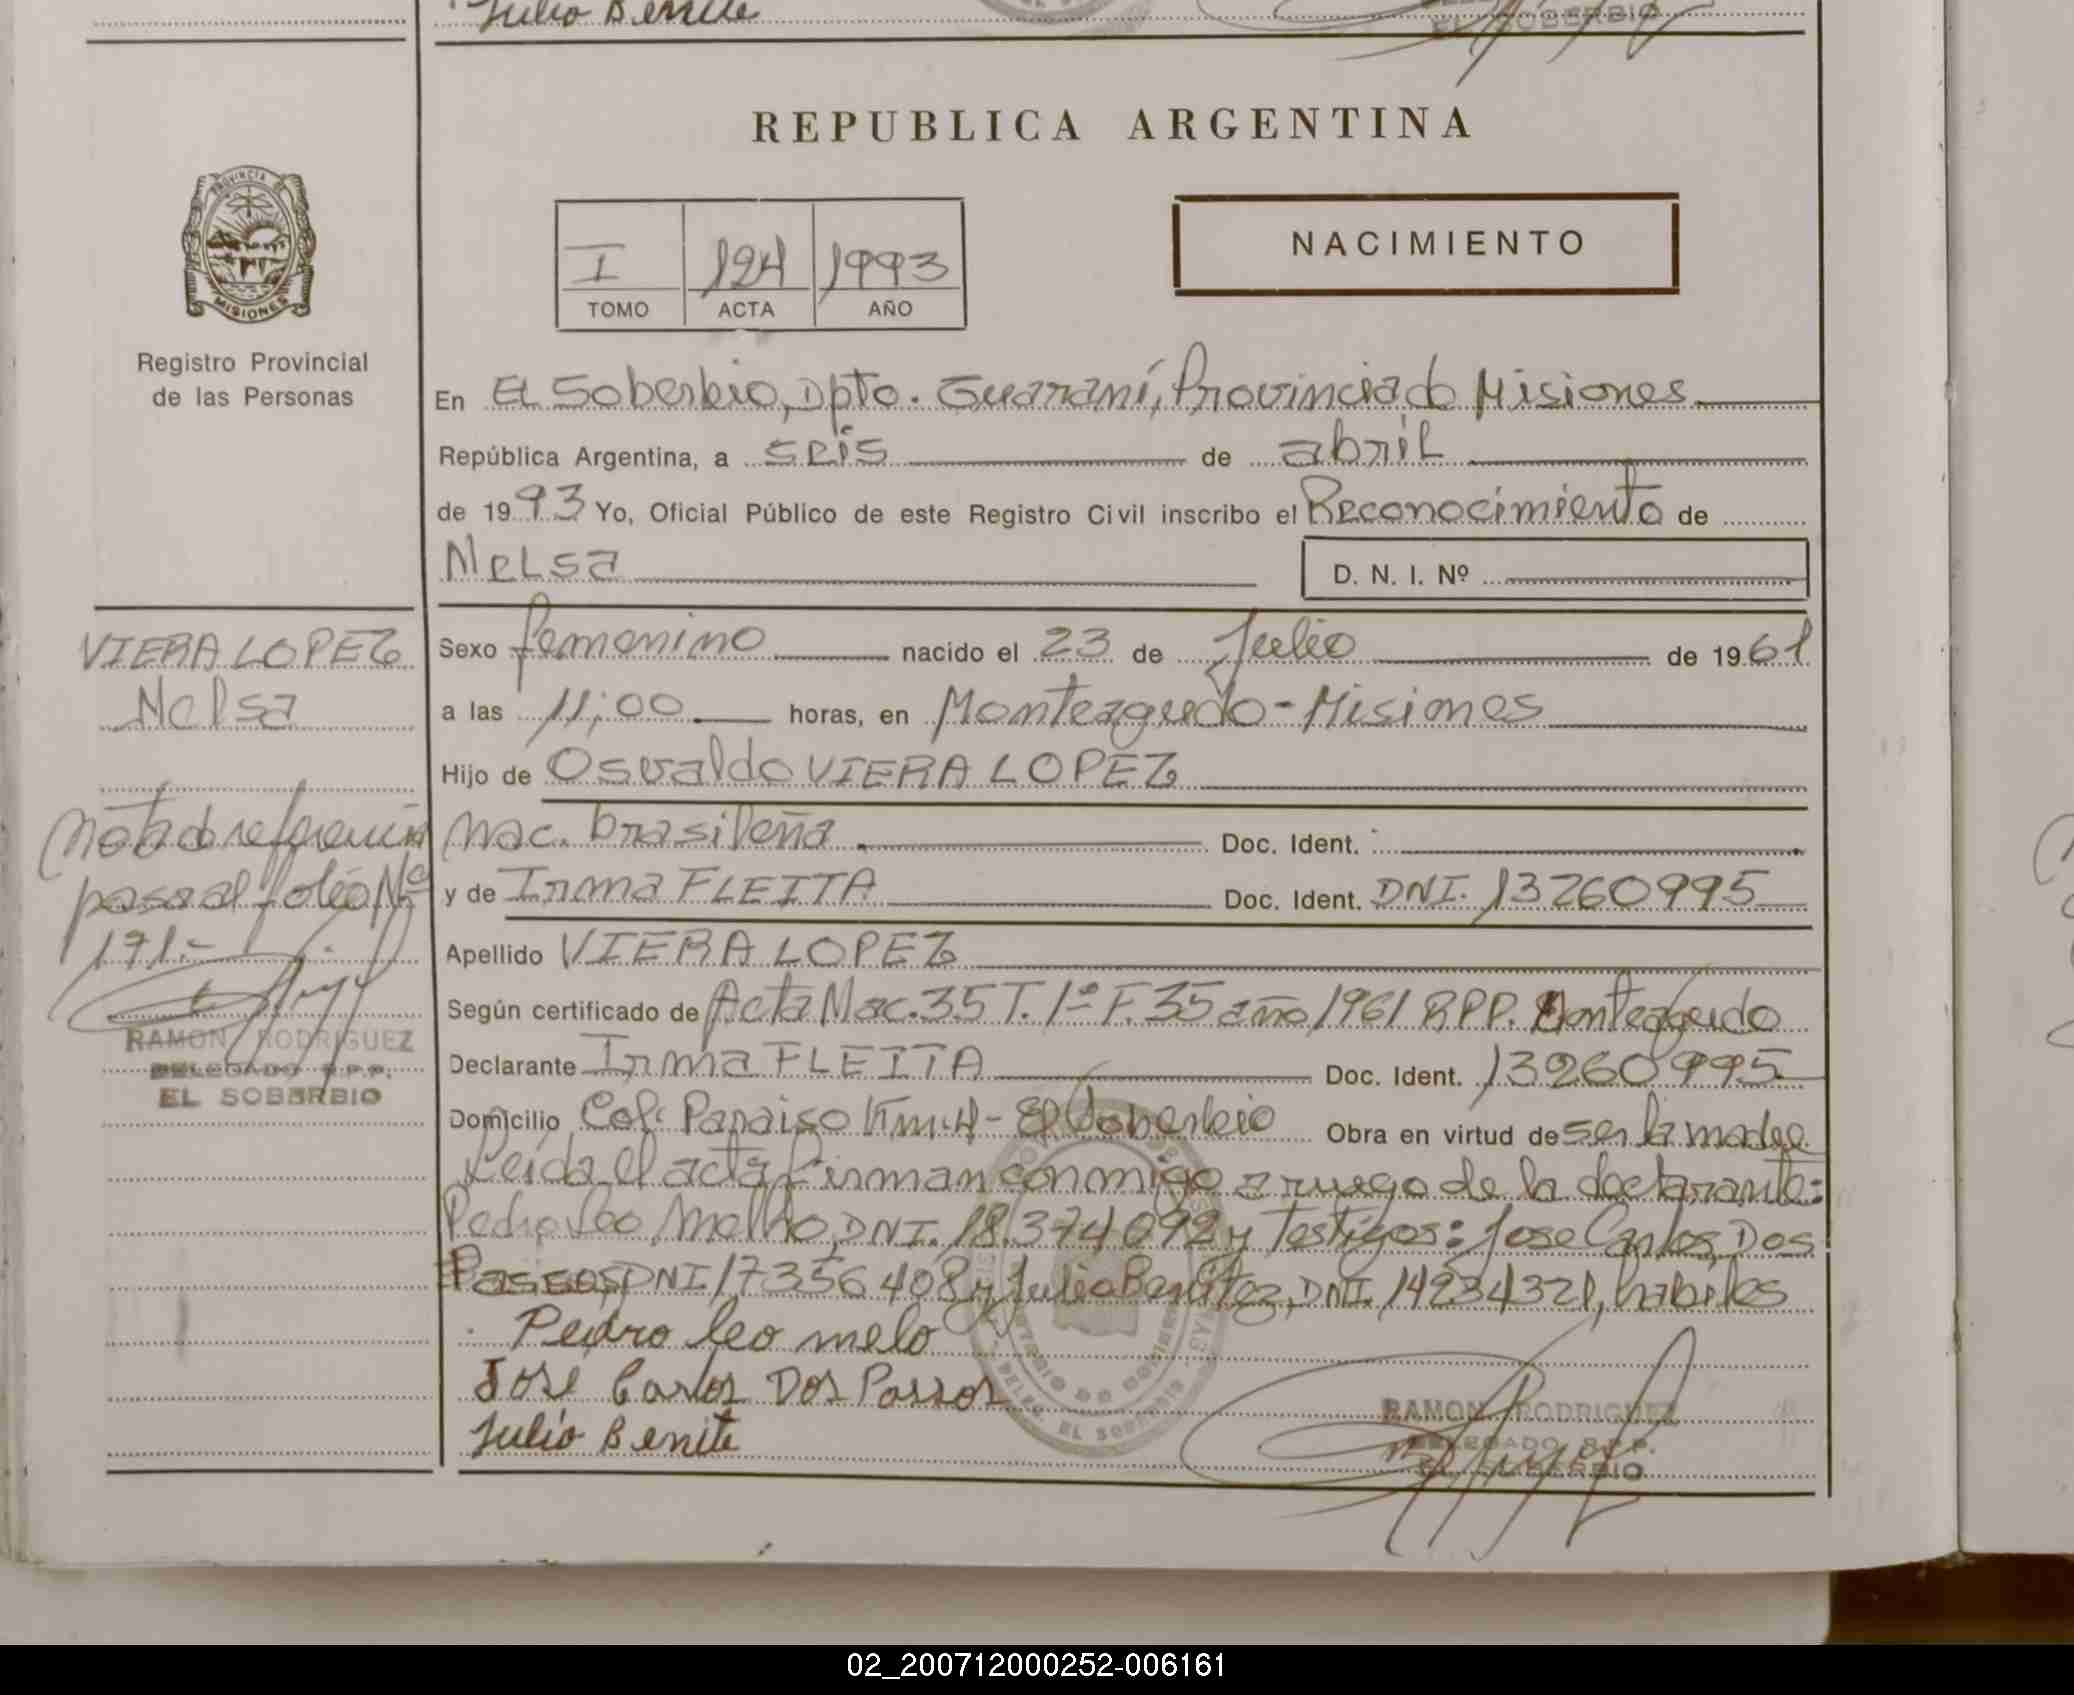 Julio Benite
EL SOBERBIO
REPUBLICA ARGENTINA
PROVINCIA DE
MISIONES
Registro Provincial
de las Personas
I 124 1993
TOMO ACTA AÑO
NACIMIENTO
En EL Soberbio, Dpto. Guaraní, Provincia de Misiones
República Argentina, a seis de abril
de 1993 Yo, Oficial Público de este Registro Civil inscribo el Reconocimiento de
Nelsa
D. N. I. Nº
VIERA LOPEZ
Nelsa
Nota de referencia
pasa al folio Nº
171.-
RAMON RODRIGUEZ
DELEGADO R.P.P.
EL SOBERBIO
Sexo femenino nacido el 23 de Julio de 1961
a las 11;00 horas, en Monteagudo - Misiones
Hijo de Osvaldo VIERA LOPEZ
Nac. brasileña. Doc. Ident.
y de Irma FLEITA Doc. Ident. DNI. 13260995
Apellido VIERA LOPEZ
Según certificado de Acta Nac. 35 T. 1º F. 35 año 1961 RPP. Monteagudo
Declarante Irma FLEITA Doc. Ident. 13260995
Domicilio Col. Paraiso Km. 4 - El Soberbio Obra en virtud de ser la madre
Leida el acta firman conmigo a ruego de la declarante:
Pedro Leo Melho, DNI. 18.374092 y Testigos: Jose Carlos Dos
Passos, DNI 17356408 y Julio Benitez, DNI. 14234321, habiles
Pedro leo melo
José Carlos Dos Passos
Julio Benite
RAMON RODRIGUEZ
DELEGADO R.P.P.
EL SOBERBIO
02_200712000252-006161